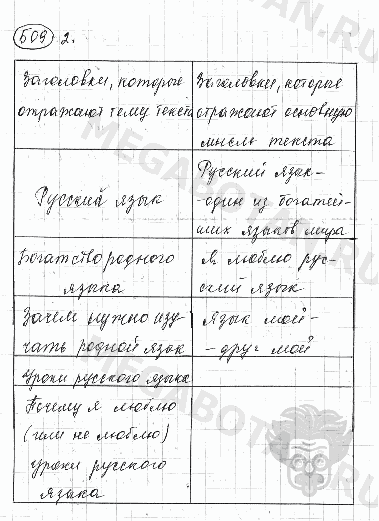 509 2.
Заголовки, которые
отражают тему текста
Заголовки, которые
отражают основную
мысль текста
Русский язык
Русский язык -
- один из богатей-
ших языков мира
Богатство родного
языка
Я люблю рус-
ский язык
Зачем нужно изу-
чать родной язык
Язык мой -
- друг мой
Уроки русского языка
Почему я люблю
(или не люблю)
уроки русского
языка
MEGABOTAN.RU
MEGABOTAN.RU